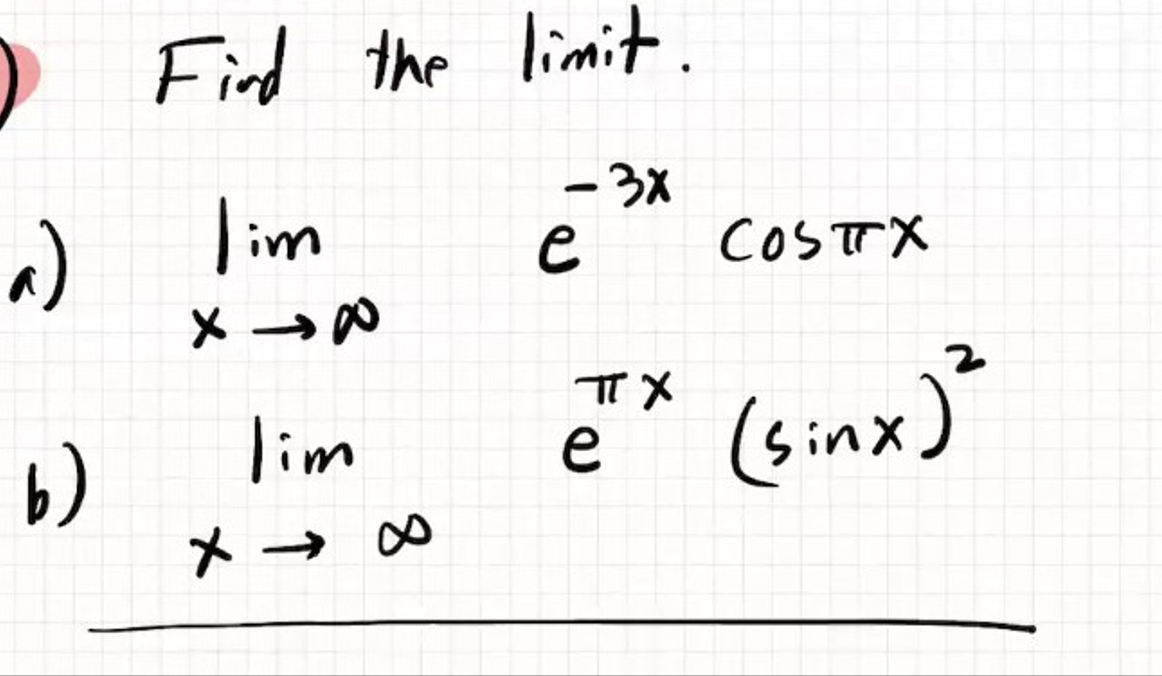 ) Find the limit.
a) lim e^{-3x} cosπx
x → ∞
b) lim e^{πx} (sinx)^2
x → ∞